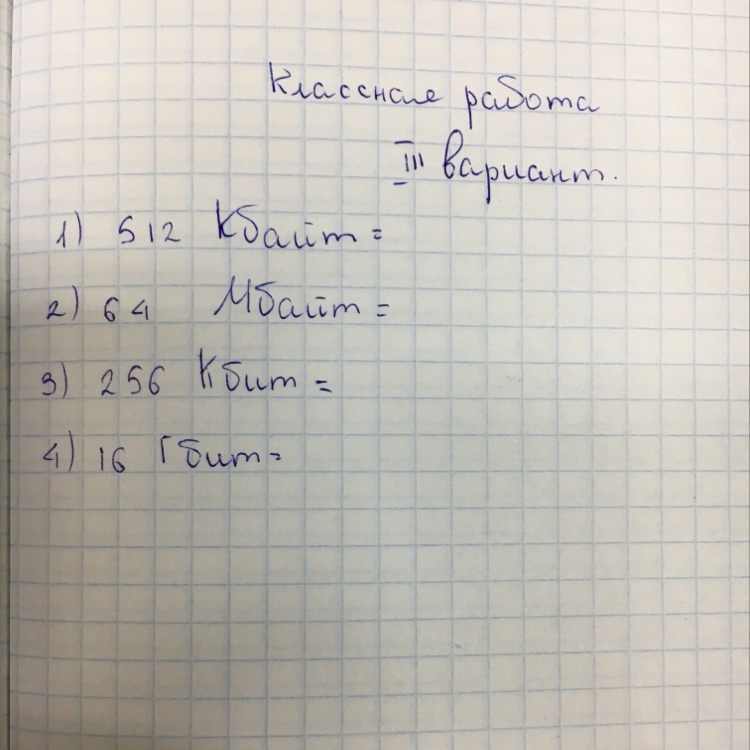 Классная работа
III вариант.
1) 512 Кбайт =
2) 64 Мбайт =
3) 256 Кбит =
4) 16 Гбит =